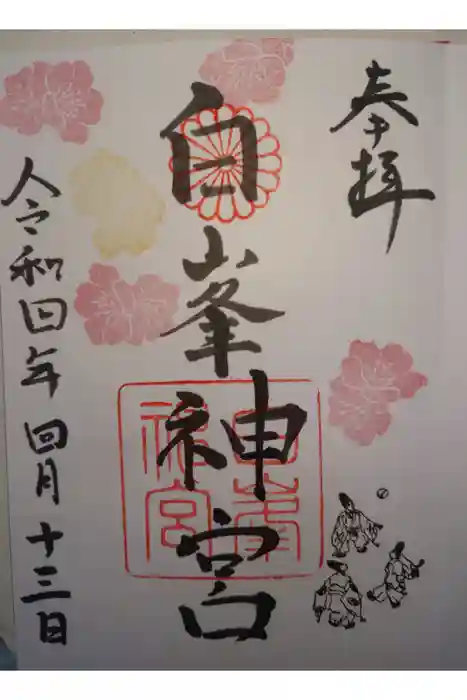 奉拝
白峯神宮
令和四年四月十三日